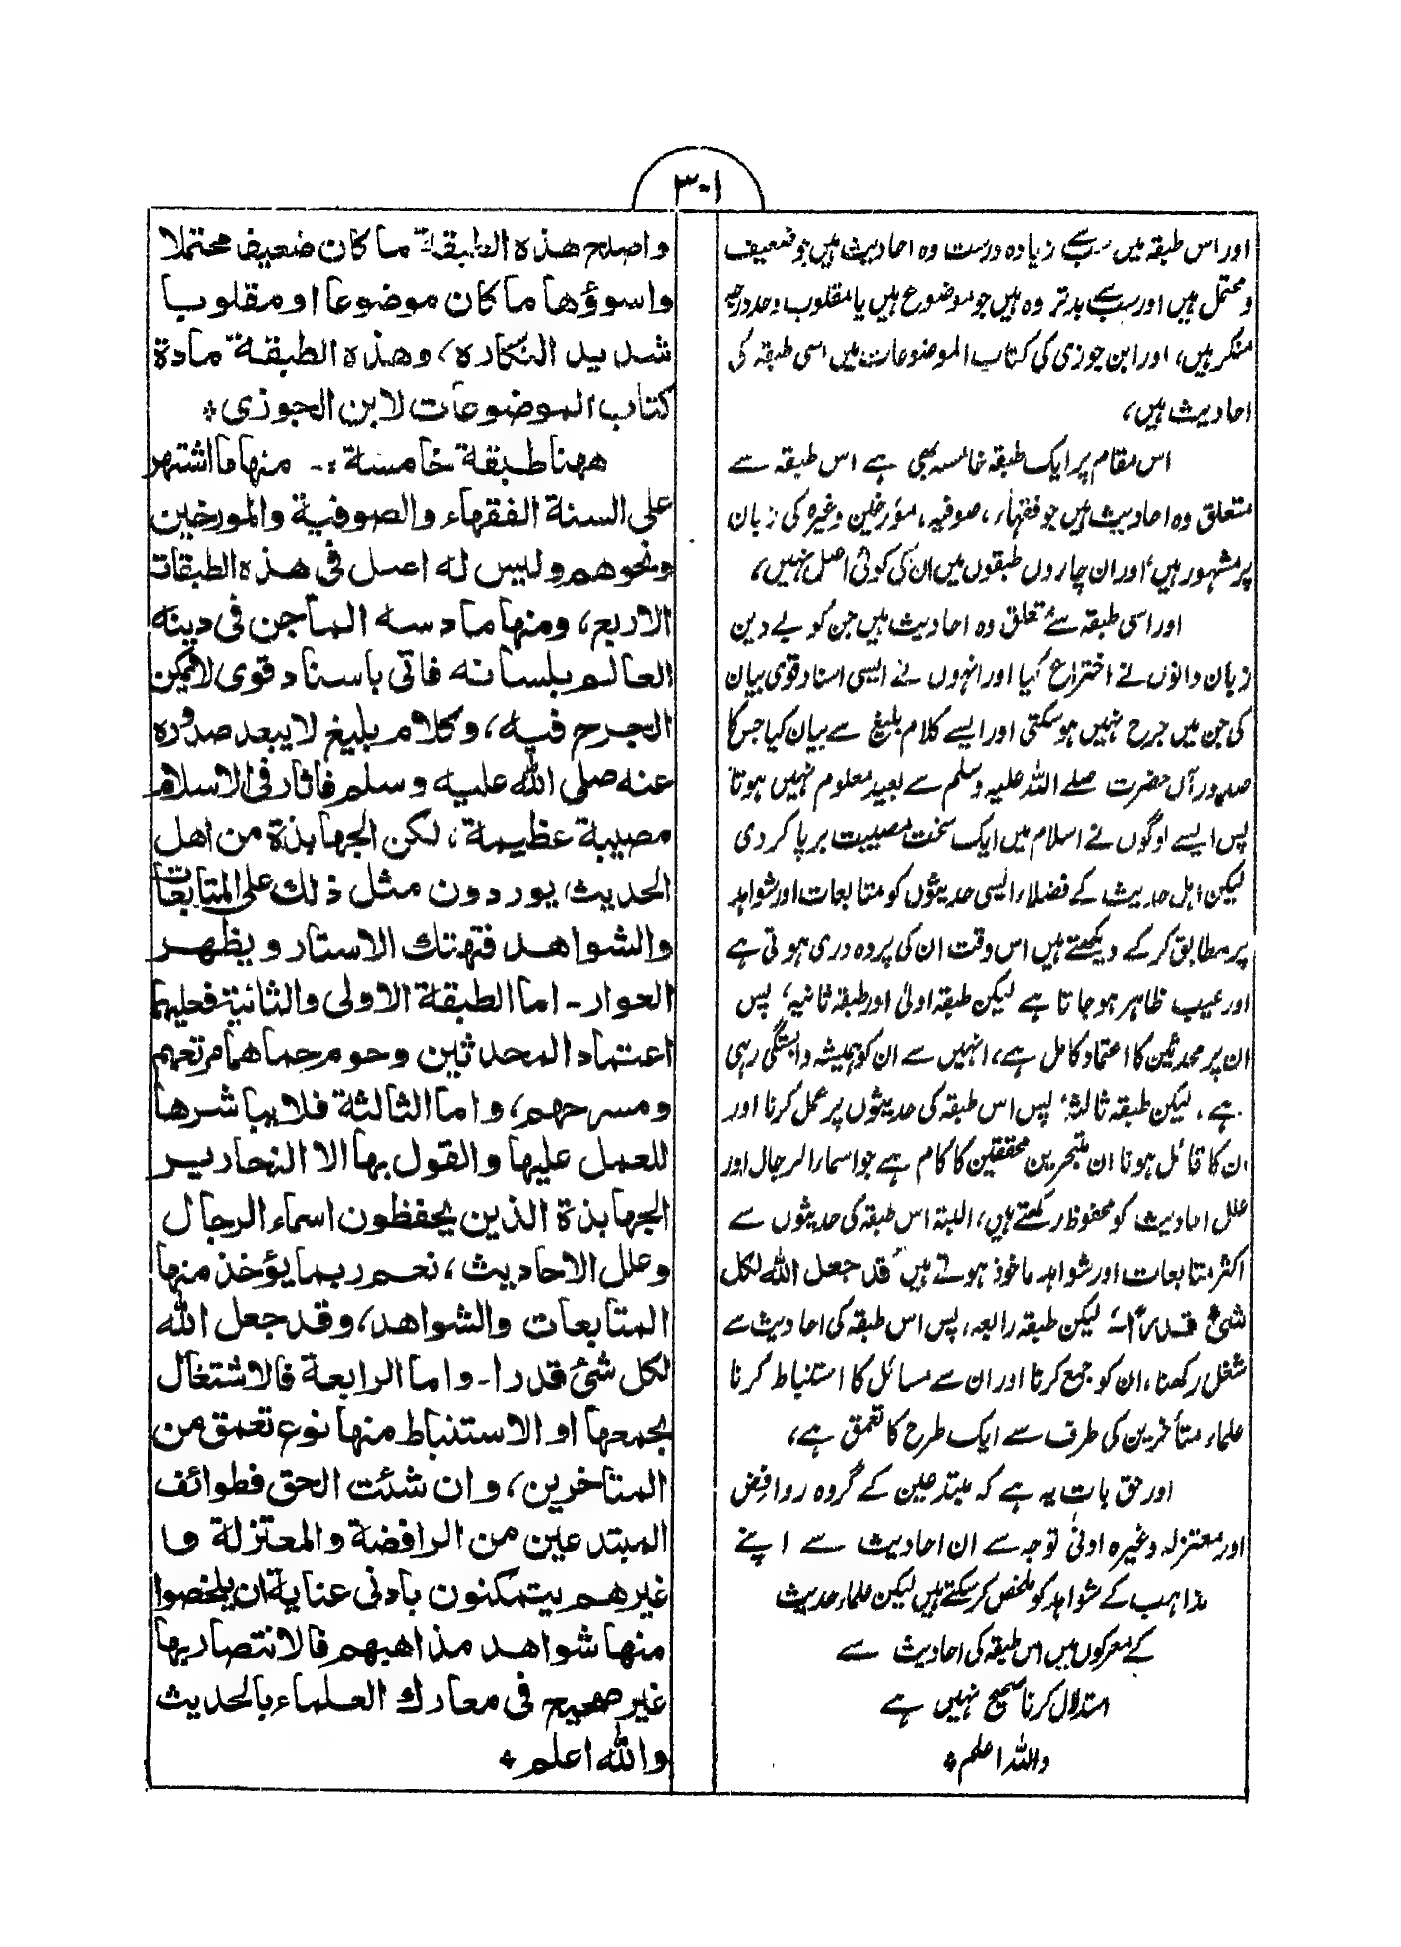 ۳۰۱
اور اس طبقہ میں سب سے زیادہ درست وہ احادیث ہیں جو ضعیف
و محتمل ہیں اور سب سے بدتر وہ ہیں جو موضوع ہیں یا مقلوب و حد درجہ
منکر ہیں، اور ابن جوزی کی کتاب الموضوعات میں اسی طبقہ کی
احادیث ہیں،
اس مقام پر ایک طبقہ خامسہ بھی ہے اس طبقہ سے
متعلق وہ احادیث ہیں جو فقہاء، صوفیہ، مؤرخین وغیرہ کی زبان
پر مشہور ہیں اور ان چاروں طبقوں میں ان کی کوئی اصل نہیں،
اور اسی طبقہ سے متعلق وہ احادیث ہیں جن کو بے دین
زبان دانوں نے اختراع کیا اور انہوں نے ایسی اسناد قوی بیان
کی جن میں جرح نہیں ہو سکتی اور ایسے کلام بلیغ سے بیان کیا جس کا
صدور آں حضرت صلے اللہ علیہ وسلم سے بعید معلوم نہیں ہوتا
پس ایسے لوگوں نے اسلام میں ایک سخت مصیبت برپا کر دی
لیکن اہل حدیث کے فضلاء ایسی حدیثوں کو متابعات اور شواہد
پر مطابق کر کے دیکھتے ہیں اس وقت ان کی پردہ دری ہوتی ہے
اور عیب ظاہر ہو جاتا ہے لیکن طبقہ اولیٰ اور طبقہ ثانیہ، پس
ان پر محدثین کا اعتماد کامل ہے، انہیں سے ان کو ہمیشہ وابستگی رہی
ہے، لیکن طبقہ ثالثہ، پس اس طبقہ کی حدیثوں پر عمل کرنا اور
ان کا قائل ہونا ان متبحرین محققین کا کام ہے جو اسماء الرجال اور
علل احادیث کو محفوظ رکھتے ہیں، البتہ اس طبقہ کی حدیثوں سے
اکثر متابعات اور شواہد ماخوذ ہوتے ہیں "قد جعل اللہ لکل
شئ قدرًا" لیکن طبقہ رابعہ، پس اس طبقہ کی احادیث سے
شغل رکھنا، ان کو جمع کرنا اور ان سے مسائل کا استنباط کرنا
علماء متأخرین کی طرف سے ایک طرح کا تعمق ہے،
اور حق بات یہ ہے کہ مبتدعین کے گروہ روافض
اور معتزلہ وغیرہ ادنیٰ توجہ سے ان احادیث سے اپنے
مذاہب کے شواہد کو ملخص کر سکتے ہیں لیکن علماء حدیث
کے معرکوں میں اس طبقہ کی احادیث سے
استدلال کرنا صحیح نہیں ہے
واللہ اعلم ٭
واصلح هذه الطبقة ما كان ضعيف محتملا
واسوؤها ما كان موضوعا او مقلوبا
شديد النكاره، وهذه الطبقة مادة
كتاب الموضوعات لابن الجوزى ٭
ههنا طبقة خامسة :- منها ما اشتهر
على السنة الفقهاء والصوفية والمورخين
ونحوهم وليس له اصل فى هذه الطبقات
الاربع، ومنها مادسه الماجن فى دينه
العالم بلسانه فاتى باسناد قوى لا يمكن
الجرح فيه، وكلام بليغ لا يبعد صدوره
عنه صلى الله عليه وسلم فاثار فى الاسلام
مصيبة عظيمة، لكن الجهابذة من اهل
الحديث يوردون مثل ذلك على المتابعات
والشواهد فتهتك الاستار و يظهر
العوار - اما الطبقة الاولى والثانية فعليهما
اعتماد المحدثين وحوم حماهما مرتعهم
ومسرحهم، واما الثالثة فلا يباشرها
للعمل عليها والقول بها الا النحارير
الجهابذة الذين يحفظون اسماء الرجال
وعلل الاحاديث، نعم ربما يؤخذ منها
المتابعات والشواهد، وقد جعل الله
لكل شئ قدرا - واما الرابعة فالاشتغال
بجمعها او الاستنباط منها نوع تعمق من
المتاخرين، وان شئت الحق فطوائف
المبتدعين من الرافضة والمعتزلة و
غيرهم يتمكنون بادنى عناية ان يلخصوا
منها شواهد مذاهبهم فالانتصار بها
غير صحيح فى معارك العلماء بالحديث
والله اعلم ٭